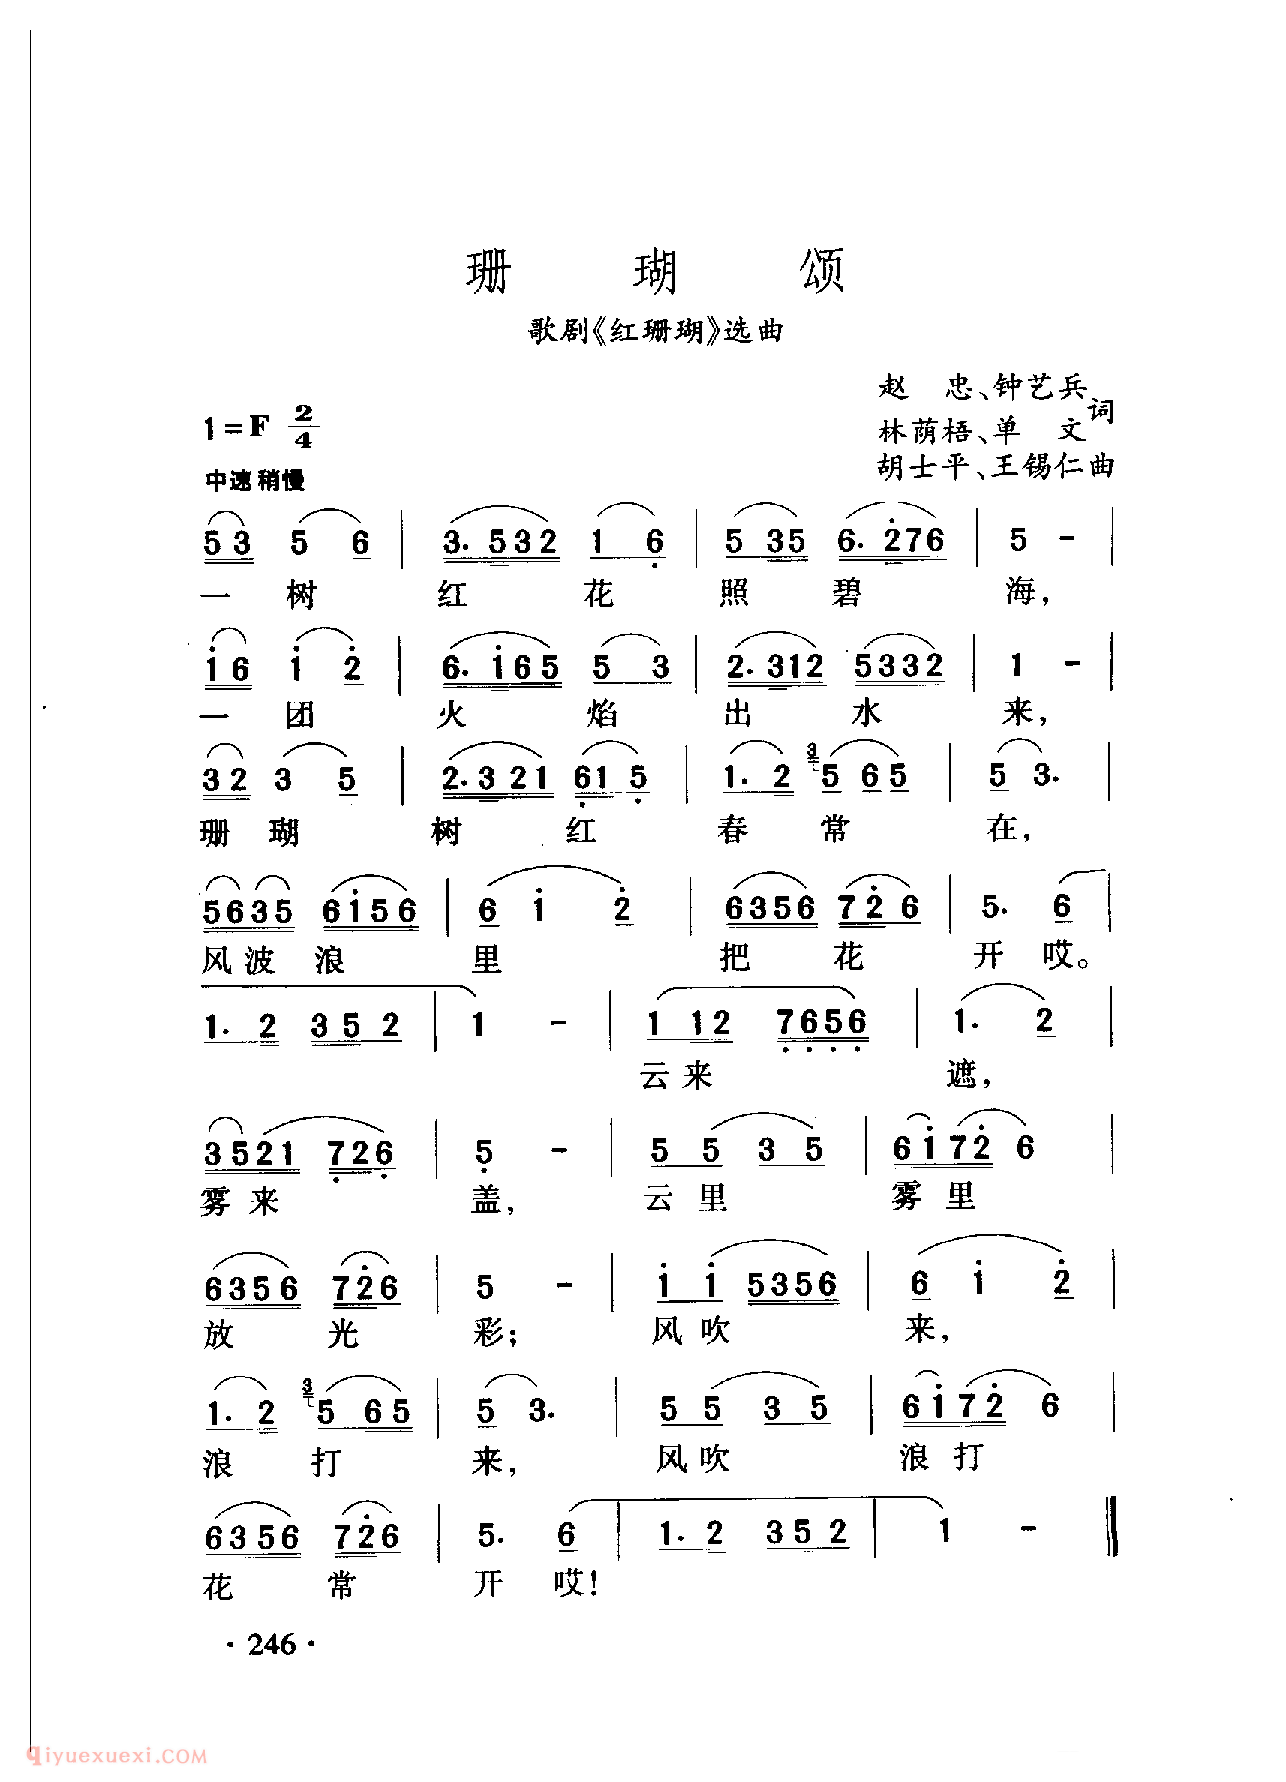 珊瑚颂
歌剧《红珊瑚》选曲
赵 忠、钟艺兵
林荫梧、单 文 词
胡士平、王锡仁曲
1=F 2/4
中速稍慢
53 5 6 | 3. 532 1 6 | 5 35 6. 276 | 5 - |
一 树 红 花 照 碧 海，
16 1 2 | 6. 165 5 3 | 2. 312 5332 | 1 - |
一 团 火 焰 出 水 来，
32 3 5 | 2. 321 61 5 | 1. 2 3 5 65 | 5 3. |
珊 瑚 树 红 春 常 在，
5635 6156 | 6 1 2 | 6356 72 6 | 5. 6 |
风波 浪 里 把 花 开 哎。
1. 2 352 | 1 - | 1 12 7656 | 1. 2 |
云来 遮，
3521 726 | 5 - | 5 5 3 5 | 6172 6 |
雾来 盖， 云里 雾里
6356 726 | 5 - | 1 1 5356 | 6 1 2 |
放 光 彩； 风吹 来，
1. 2 3 5 65 | 5 3. | 5 5 3 5 | 6172 6 |
浪 打 来， 风吹 浪打
6356 726 | 5. 6 | 1. 2 352 | 1 - ‖
花 常 开 哎！
·246·
qiyuexuexi.COM